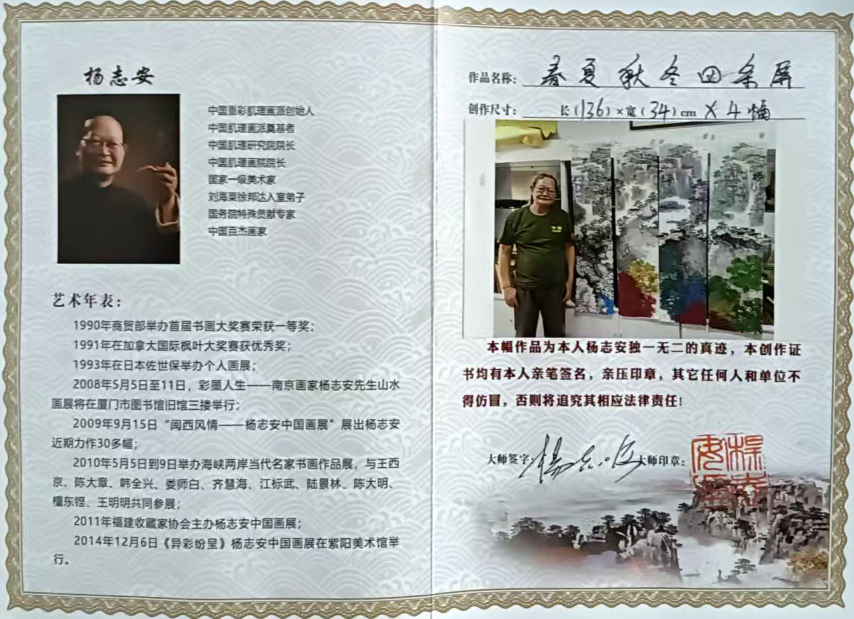 杨志安
中国重彩肌理画派创始人
中国肌理画派奠基者
中国肌理研究院院长
中国肌理画院院长
国家一级美术家
刘海粟徐邦达入室弟子
国务院特殊贡献专家
中国百杰画家
艺术年表：
1990年商贸部举办首届书画大奖赛荣获一等奖；
1991年在加拿大国际枫叶大奖赛获优秀奖；
1993年在日本佐世保举办个人画展；
2008年5月5日至11日，彩墨人生——南京画家杨志安先生山水
画展将在厦门市图书馆旧馆三搂举行；
2009年9月15日“闽西风情——杨志安中国画展”展出杨志安
近期力作30多幅；
2010年5月5日到9日举办海峡两岸当代名家书画作品展，与王西
京、陈大章、韩全兴、娄师白、齐慧海、江标武、陆景林、陈大明、
檀东铿、王明明共同参展；
2011年福建收藏家协会主办杨志安中国画展；
2014年12月6日《异彩纷呈》杨志安中国画展在紫阳美术馆举
行。
作品名称：春夏秋冬四条屏
创作尺寸：长(136)×宽(34)cm X 4幅
本幅作品为本人杨志安独一无二的真迹，本创作证
书均有本人亲笔签名，亲压印章，其它任何人和单位不
得仿冒，否则将追究其相应法律责任！
大师签字：杨志安 大师印章：